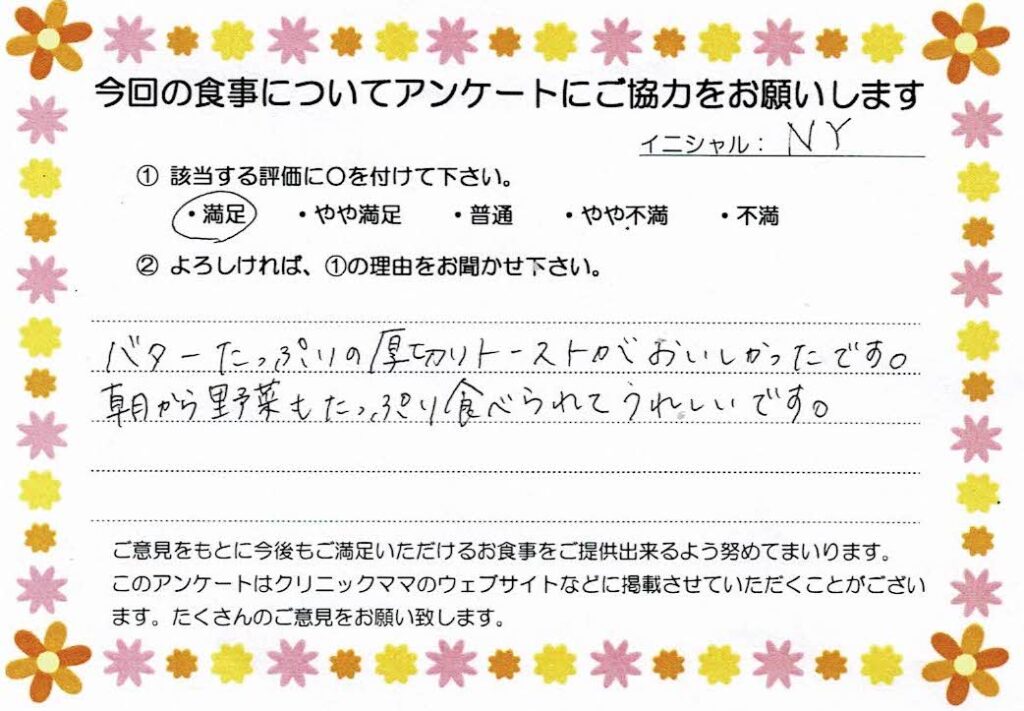 今回の食事についてアンケートにご協力をお願いします
イニシャル： NY
① 該当する評価に〇を付けて下さい。
・満足 ・やや満足 ・普通 ・やや不満 ・不満
② よろしければ、①の理由をお聞かせ下さい。
バターたっぷりの厚切りトーストがおいしかったです。
朝から野菜もたっぷり食べられてうれしいです。
ご意見をもとに今後もご満足いただけるお食事をご提供出来るよう努めてまいります。
このアンケートはクリニックママのウェブサイトなどに掲載させていただくことがござい
ます。たくさんのご意見をお願い致します。